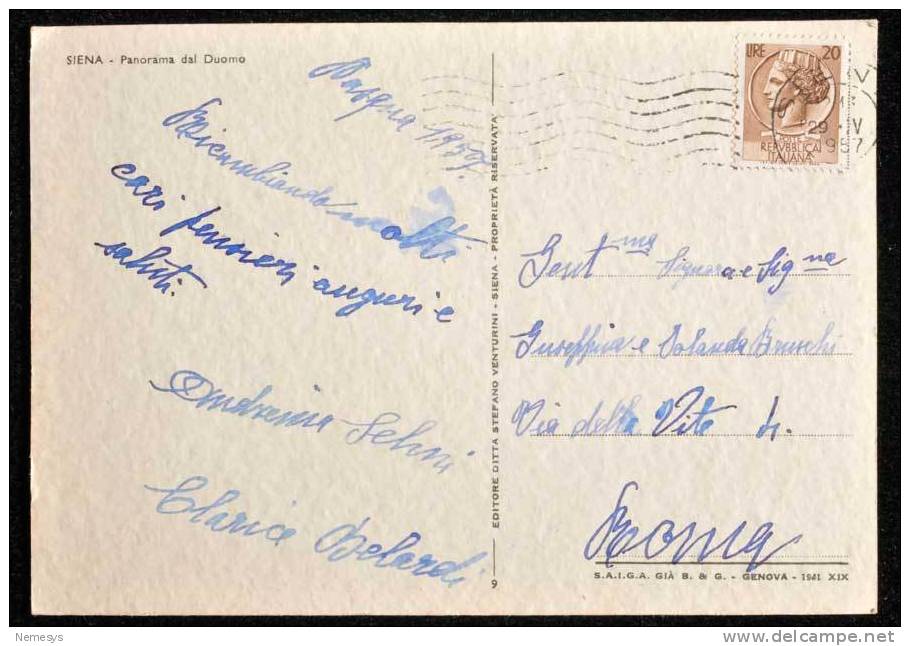 SIENA - Panorama dal Duomo
Pasqua 1957.
Ricambiando molti
cari pensieri auguri e
saluti.
Andreina
Clarice Belardi
EDITORE DITTA STEFANO VENTURINI - SIENA - PROPRIETÀ RISERVATA
9
LIRE 20
POSTE
REPVBBLICA
ITALIANA
29 · V
1957
Gent ma Signora e Sig na
Giuseppina e Iolanda Bruschi
Via della Vite
Roma
S.A.I.G.A. GIÀ B. & G. - GENOVA - 1941 XIX
Nemesys
www.delcampe.net